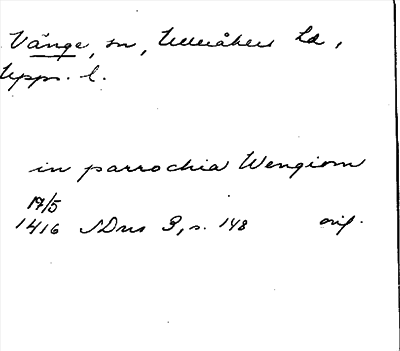 Vänge, sn, Ulleråkers hd,
Upps. l.
in parrochia Wengiom
17/5
1416 SDns 3, s. 148 orig.